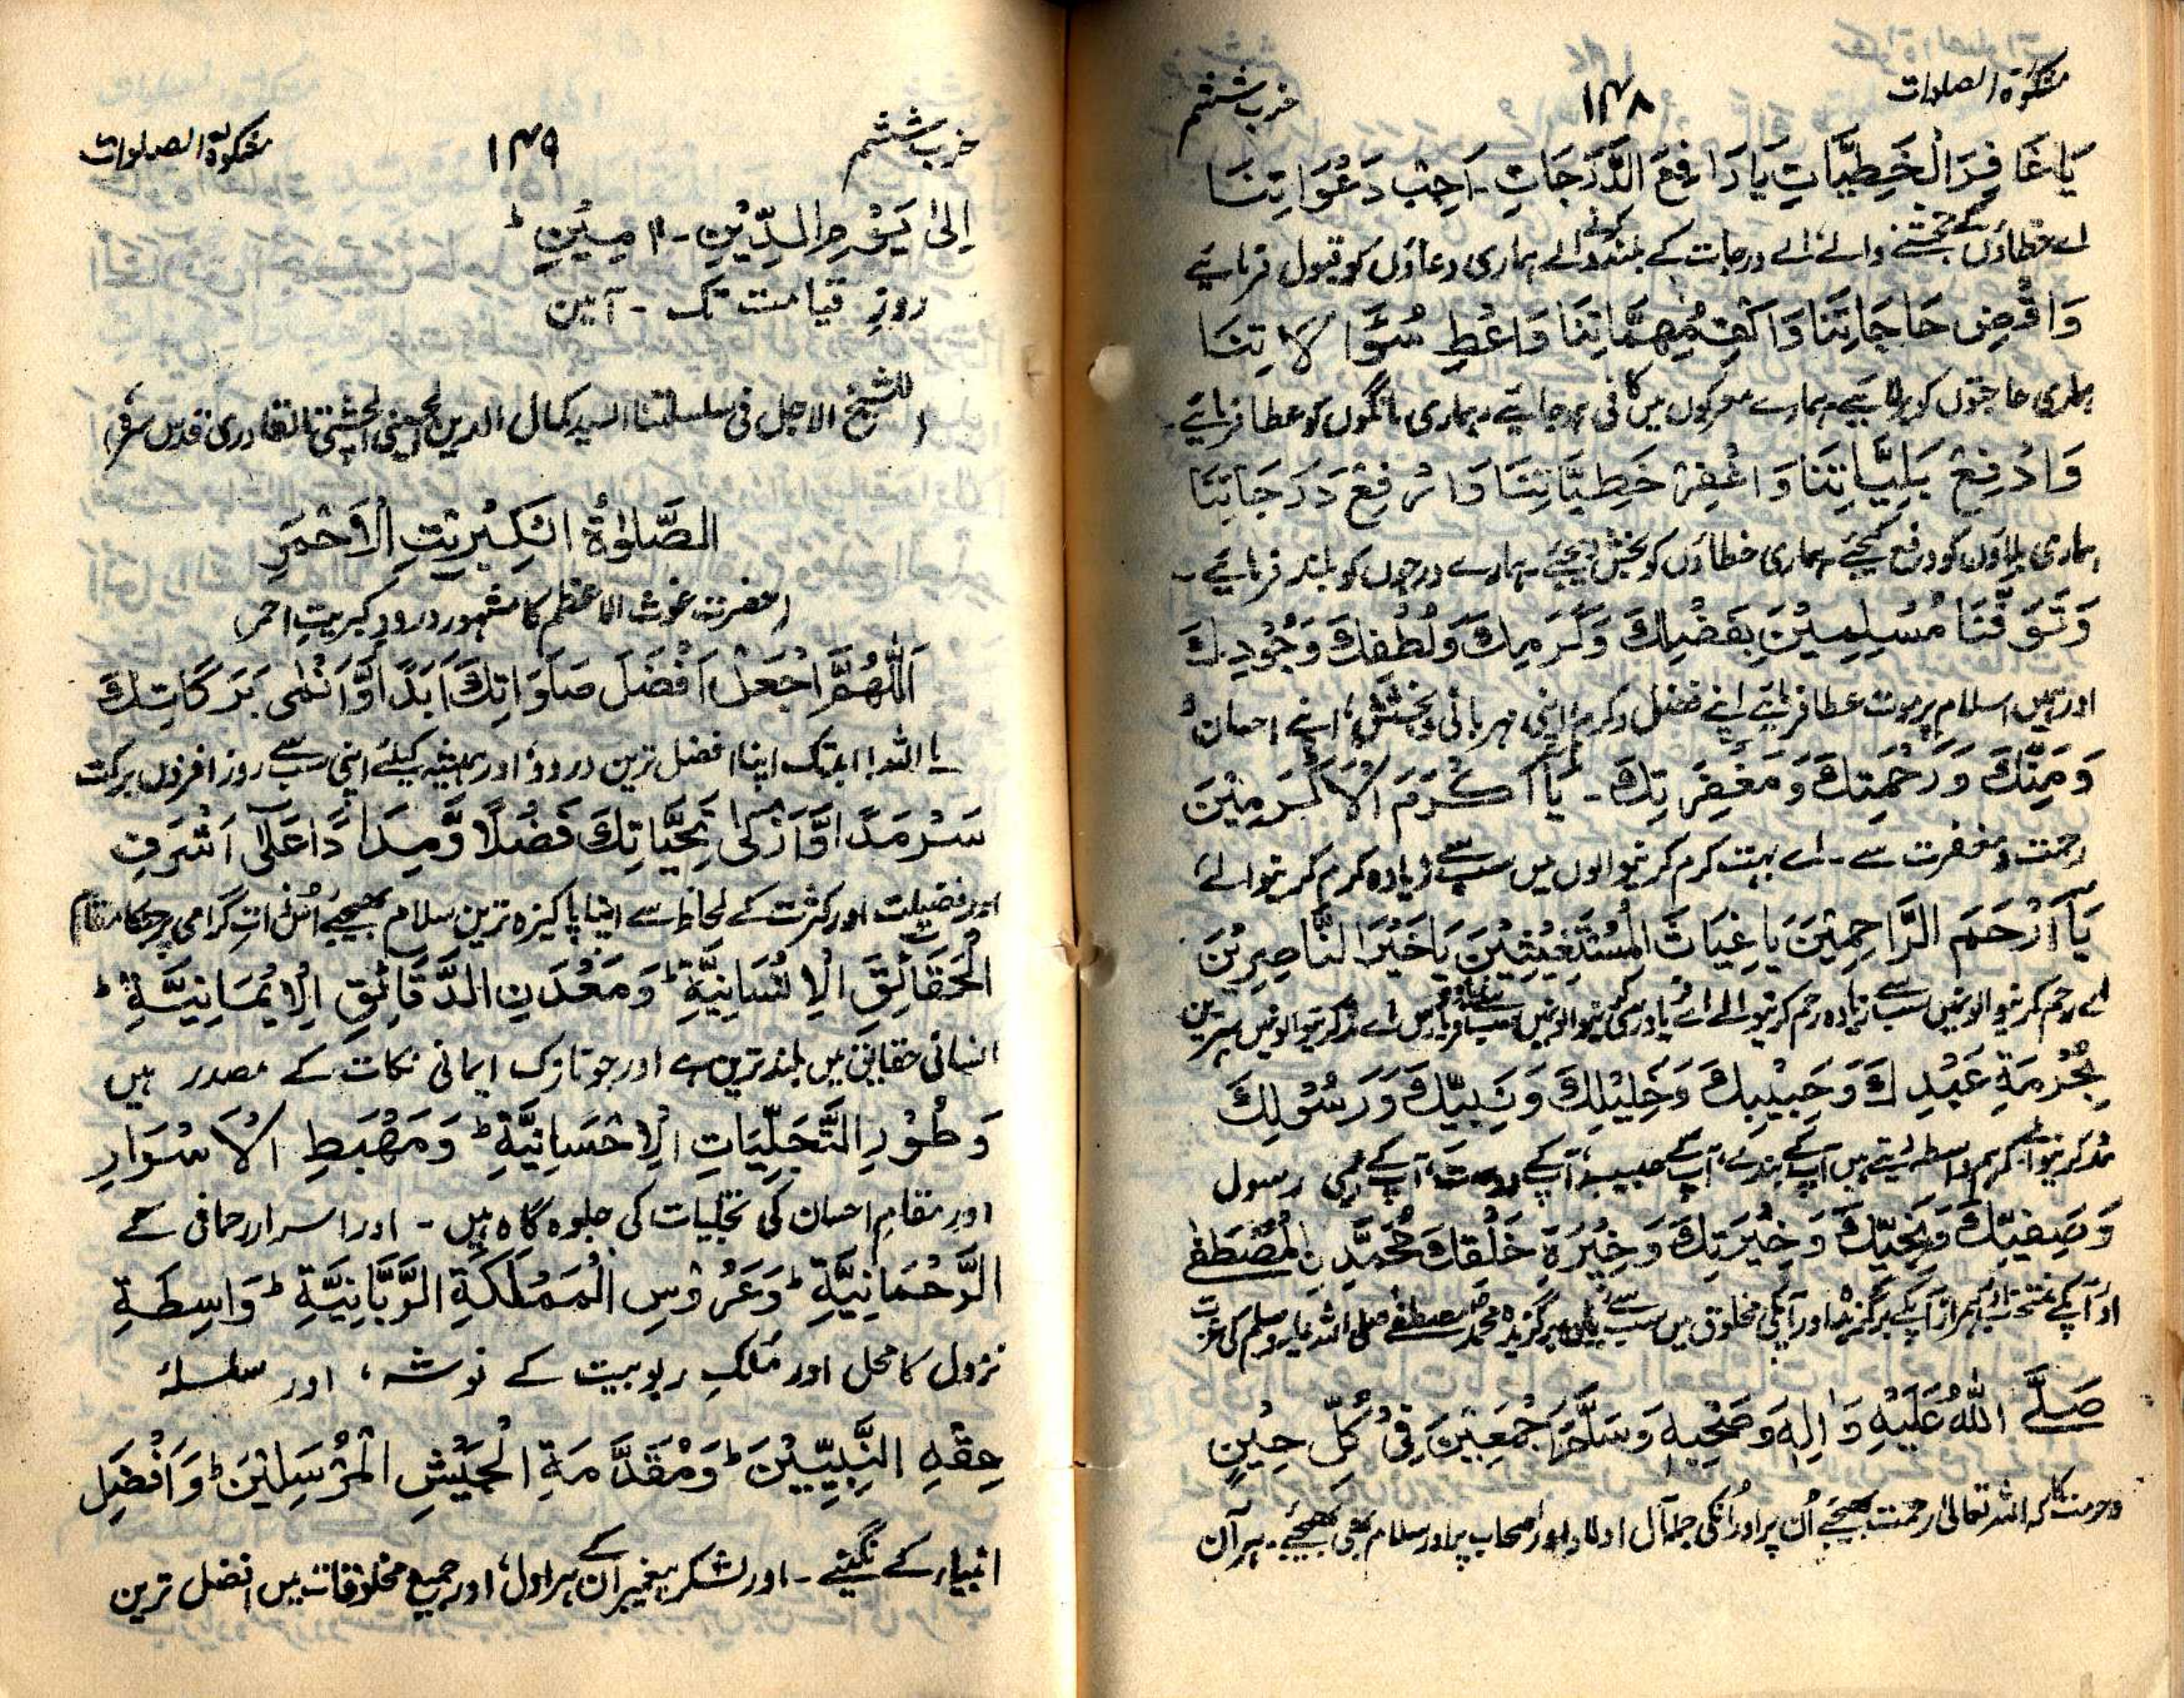 مشکوٰۃ الصلوات
۱۴۸
حزب ششم
يَا غَافِرَ الْخَطِيَّاتِ يَا رَافِعَ الدَّرَجَاتِ۔ اَجِبْ دَعَوَاتِنَا
اے خطاؤں کے بخشنے والے، اے درجات کے بلند کرنے والے ہماری دعاؤں کو قبول فرمائیے
وَاقْضِ حَاجَاتِنَا وَاكْفِ مُهِمَّاتِنَا وَاعْطِ سُؤَالَاتِنَا
ہماری حاجتوں کو برلائیے، ہمارے معرکوں میں کافی ہوجائیے، ہماری مانگوں کو عطا فرمائیے۔
وَادْفِعْ بَلِيَّاتِنَا وَاغْفِرْ خَطِيَّاتِنَا وَارْفِعْ دَرَجَاتِنَا
ہماری بلاؤں کو دفع کیجئے، ہماری خطاؤں کو بخش دیجئے، ہمارے درجوں کو بلند فرمائیے۔
وَتَوَفَّنَا مُسْلِمِيْنَ بِفَضْلِكَ وَكَرَمِكَ وَلُطْفِكَ وَجُوْدِكَ
اور ہمیں اسلام پر موت عطا فرمائیے اپنے فضل و کرم، اپنی مہربانی و بخشش، اپنے احسان و
وَمَنِّكَ وَرَحْمَتِكَ وَمَغْفِرَتِكَ۔ يَا اَكْرَمَ الْاَكْرَمِيْنَ
رحمت و مغفرت سے۔ اے بہت کرم کرنیوالوں میں سب سے زیادہ کرم کرنیوالے،
يَا اَرْحَمَ الرَّاحِمِيْنَ يَا غِيَاثَ الْمُسْتَغِيْثِيْنَ يَا خَيْرَ النَّاصِرِيْنَ
اے رحم کرنیوالونمیں سب سے زیادہ رحم کرنیوالے اے فریادرسی کرنیوالونمیں سب سے فریادرس اے مدد کرنیوالونمیں بہترین
بِحُرْمَةِ عَبْدِكَ وَحَبِيْبِكَ وَخَلِيْلِكَ وَنَبِيِّكَ وَرَسُوْلِكَ
مدد کرنیوالے ہم واسطہ دیتے ہیں آپ کے بندے، آپ کے حبیب، آپ کے دوست، آپ کے نبی رسول
وَصَفِيِّكَ وَنَجِيِّكَ وَخِيْرَتِكَ وَخِيْرَةِ خَلْقِكَ مُحَمَّدِنِ الْمُصْطَفٰى
اور آپ کے منتخب اور ہمراز آپ کے برگزیدہ اور آپکی مخلوق میں سب سے برگزیدہ محمد مصطفےٰ صلی اللہ علیہ وسلم کی عزت
صَلَّى اللّٰهُ عَلَيْهِ وَاٰلِهٖ وَصَحْبِهٖ وَسَلَّمَ اَجْمَعِيْنَ فِيْ كُلِّ حِيْنٍ
و حرمت کا کہ اللہ تعالیٰ رحمت بھیجے اُن پر اور اُنکی جملہ آل اولاد اور اصحاب پر اور سلام بھی بھیجئے۔ ہر آن
حزب ششم
۱۴۹
مشکوٰۃ الصلوات
اِلٰى يَوْمِ الدِّيْنِ۔ اٰمِيْنِ ط
روزِ قیامت تک۔ آمین
(للشیخ الاجل فی سلسلتنا السید کمال الدین الحسینی الچشتی القادری قدس سرہٗ)
اَلصَّلٰوةُ الْكِبْرِيْتِ الْاَحْمَرِ
(حضرت غوث الاعظم کا مشہور درود کبریتِ احمر)
اَللّٰهُمَّ اجْعَلْ اَفْضَلَ صَلَوَاتِكَ اَبَدًا وَّاَنْمٰى بَرَكَاتِكَ
یا اللہ! ابد تک اپنا افضل ترین درود، اور ہمیشہ کیلئے اپنی سب سے روز افزوں برکت
سَرْمَدًا وَّاَزْكٰى تَحِيَّاتِكَ فَضْلًا وَّمِدَادًا عَلٰى اَشْرَفِ
اور فضیلت اور کثرت کے لحاظ سے اپنا پاکیزہ ترین سلام بھیجئے اُس ذاتِ گرامی پر جنکا مقام
الْحَقَائِقِ الْاِنْسَانِيَّةِ ط وَمَعْدَنِ الدَّقَائِقِ الْاِيْمَانِيَّةِ ط
انسانی حقایق میں بلند ترین ہے اور جو نازک ایمانی نکات کے مصدر ہیں
وَطُوْرِ التَّجَلِّيَاتِ الْاِحْسَانِيَّةِ ط وَمَهْبَطِ الْاَسْرَارِ
اور مقامِ احسان کی تجلیات کی جلوہ گاہ ہیں۔ اور اسرار رحمانی کے
الرَّحْمَانِيَّةِ ط وَعَرُوْسِ الْمَمْلَكَةِ الرَّبَّانِيَّةِ ط وَاسِطَةِ
نزول کا محل اور مُلکِ ربوبیت کے نوشہ، اور سلسلۂ
عِقْدِ النَّبِيِّيْنَ ط وَمُقَدَّمَةِ الْجَيْشِ الْمُرْسَلِيْنَ ط وَاَفْضَلِ
انبیاء کے نگینے۔ اور لشکر پیغمبران کے ہراول، اور جمیع مخلوقات میں افضل ترین